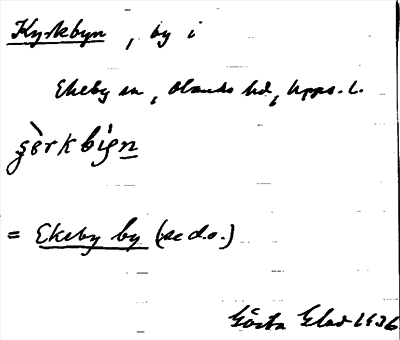 Kyrkbyn, by i
Ekeby sn, Olands hd, Upps. l.
= Ekeby by (se d.o.)
Gösta Elas 1936